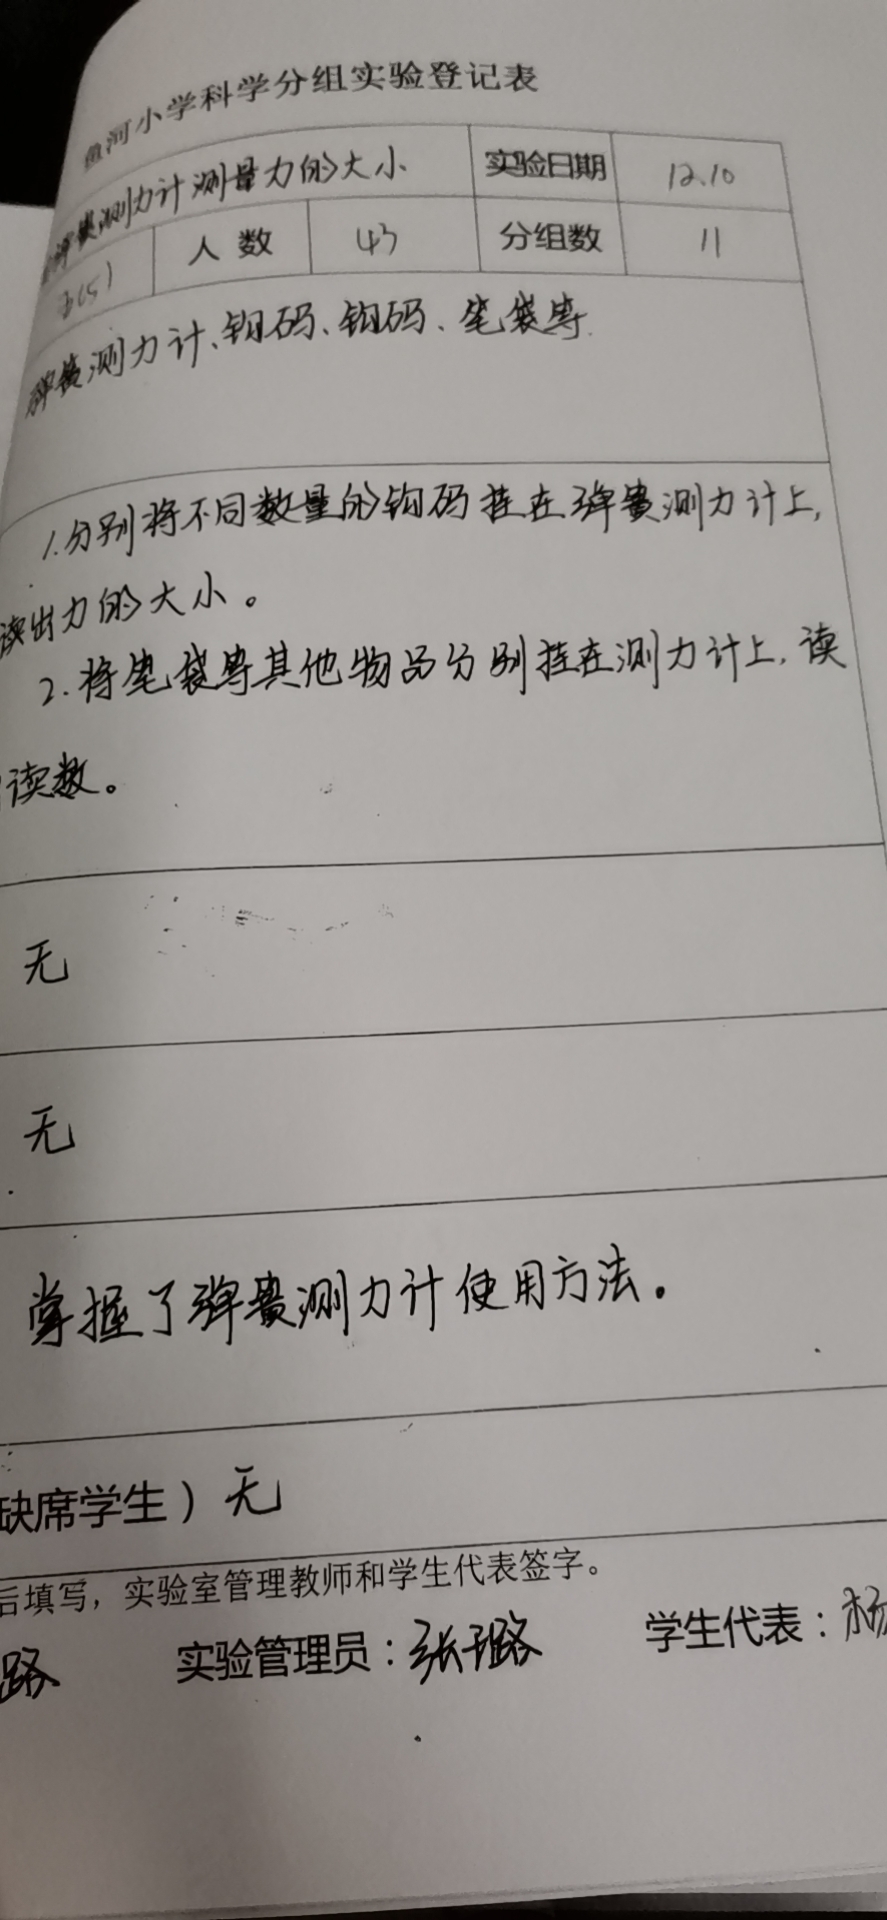 鱼河小学科学分组实验登记表
弹簧测力计测量力的大小 实验日期 12.10
(5) 人数 43 分组数 11
弹簧测力计、钩码、钩码、笔袋等.
1.分别将不同数量的钩码挂在弹簧测力计上,
读出力的大小。
2.将笔袋等其他物品分别挂在测力计上,读
读数。
无
无
掌握了弹簧测力计使用方法。
缺席学生）无
后填写，实验室管理教师和学生代表签字。
路 实验管理员：张璐 学生代表：杨